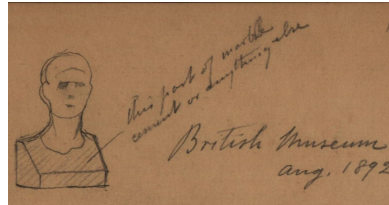 this part of marble
cement or anything else
British Museum
Aug. 1892